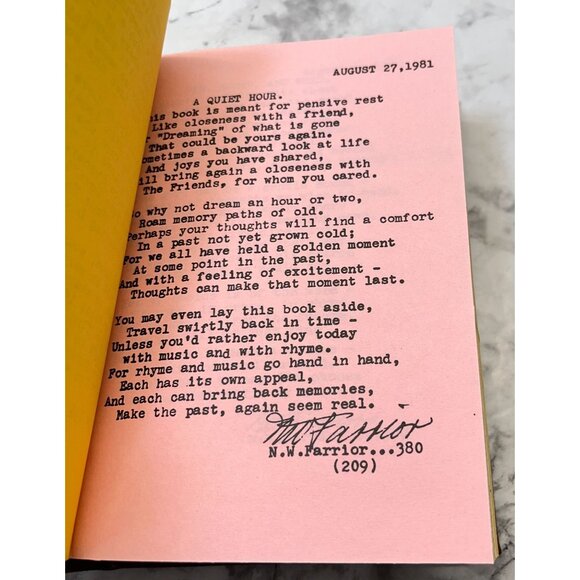 AUGUST 27,1981
A QUIET HOUR.
his book is meant for pensive rest
Like closeness with a friend,
"Dreaming" of what is gone
That could be yours again.
ometimes a backward look at life
And joys you have shared,
ll bring again a closeness with
The Friends, for whom you cared.
o why not dream an hour or two,
Roam memory paths of old.
erhaps your thoughts will find a comfort
In a past not yet grown cold;
For we all have held a golden moment
At some point in the past,
And with a feeling of excitement -
Thoughts can make that moment last.
You may even lay this book aside,
Travel swiftly back in time -
Unless you'd rather enjoy today
with music and with rhyme.
For rhyme and music go hand in hand,
Each has its own appeal,
And each can bring back memories,
Make the past, again seem real.
NW Farrior
N.W.Farrior...380
(209)